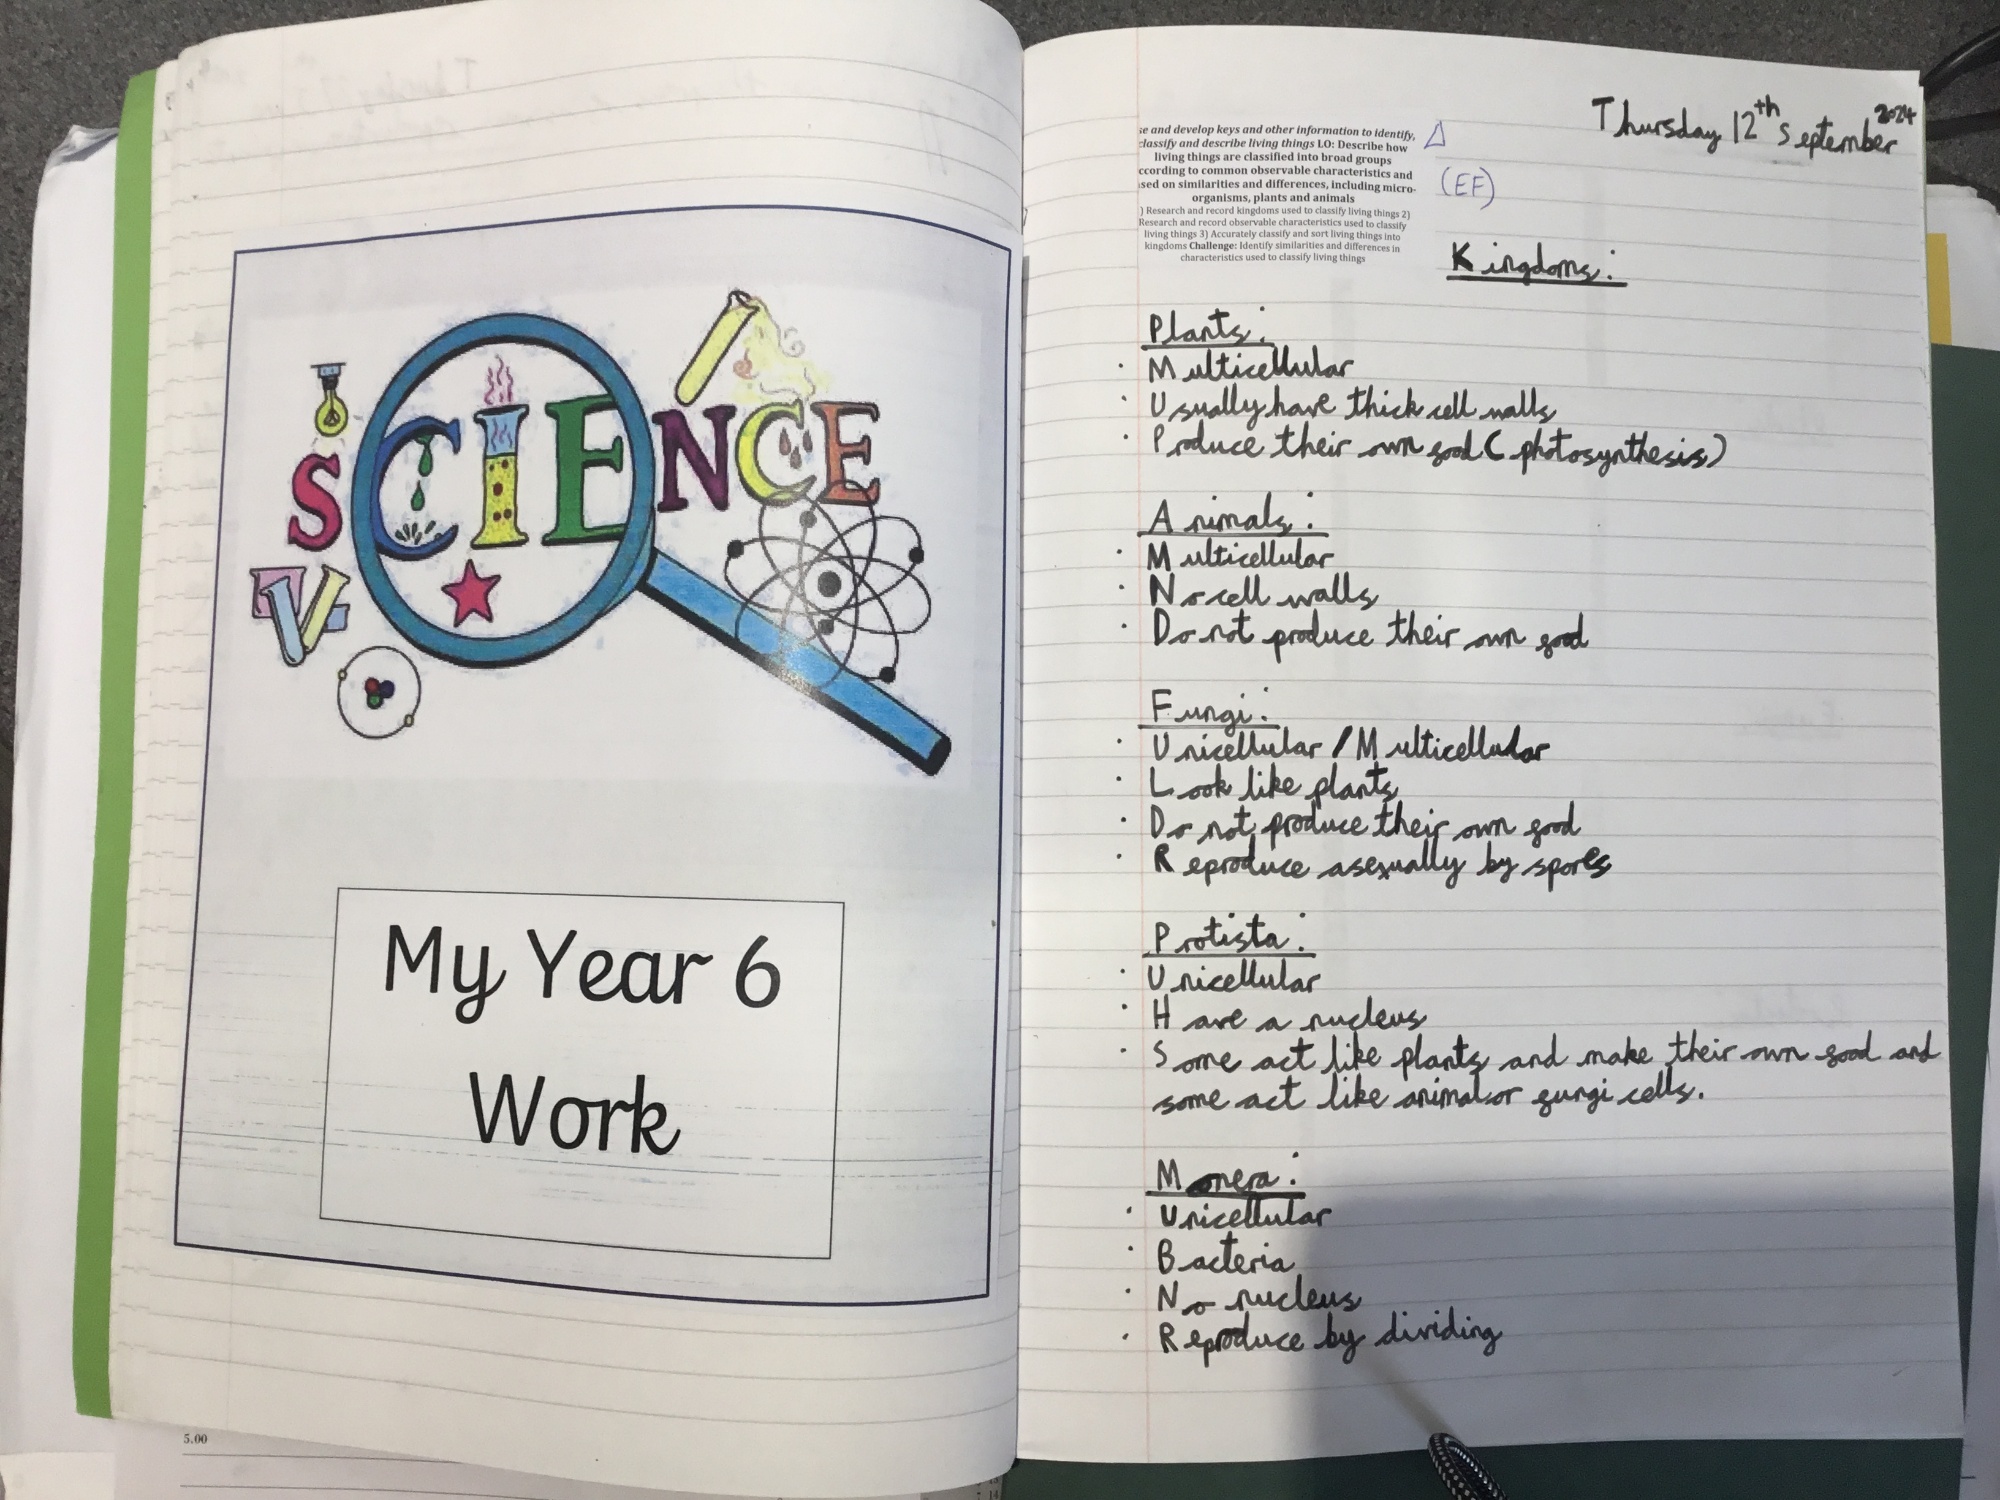 SCIENCE
My Year 6
Work
5.00
14
Thursday 12th September 2024
se and develop keys and other information to identify,
classify and describe living things LO: Describe how
living things are classified into broad groups
ccording to common observable characteristics and
sed on similarities and differences, including micro-
organisms, plants and animals
) Research and record kingdoms used to classify living things 2)
Research and record observable characteristics used to classify
living things 3) Accurately classify and sort living things into
kingdoms Challenge: Identify similarities and differences in
characteristics used to classify living things
(EF)
Kingdoms:
Plants:
· Multicellular
· Usually have thick cell walls
· Produce their own food (photosynthesis)
Animals:
· Multicellular
· No cell walls
· Do not produce their own food
Fungi:
· Unicellular / Multicellular
· Look like plants
· Do not produce their own food
· Reproduce asexually by spores
Protista:
· Unicellular
· Have a nucleus
· Some act like plants and make their own food and
some act like animal or fungi cells.
Monera:
· Unicellular
· Bacteria
· No nucleus
· Reproduce by dividing